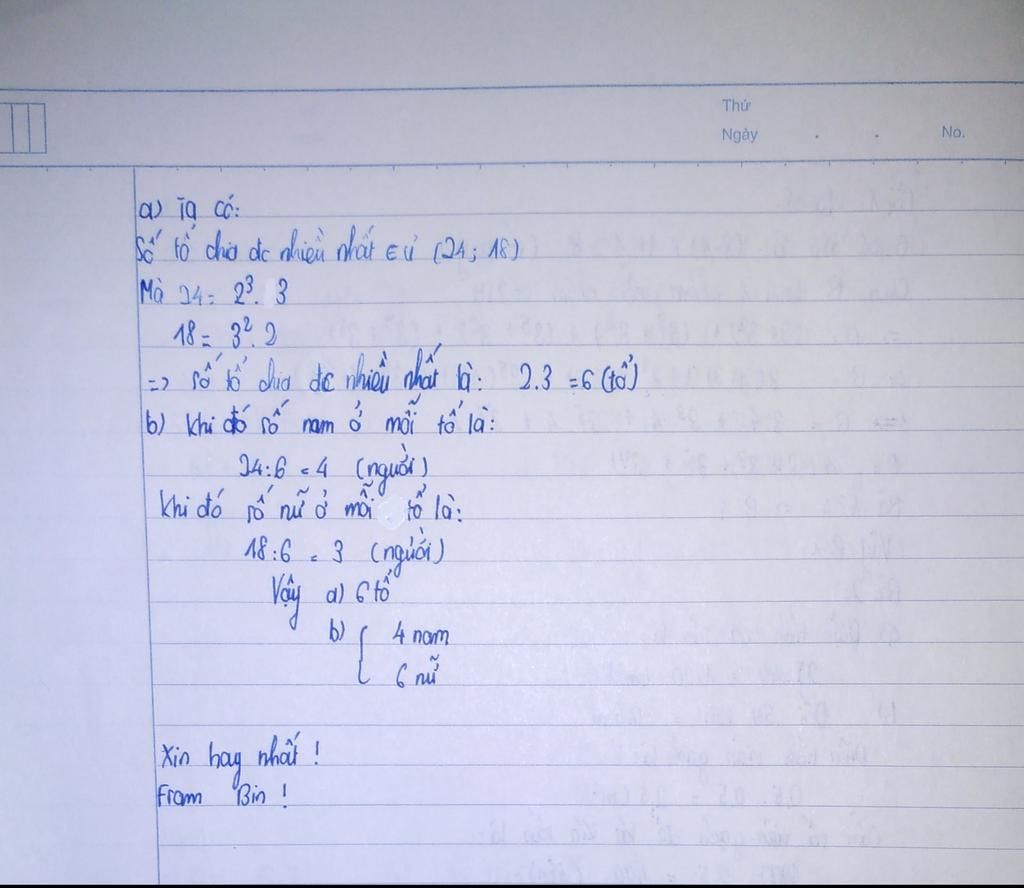 Thứ
Ngày . . No.
a) Ta có:
Số tổ chia đc nhiều nhất ∈ Ư (24; 18)
Mà 24 = 2³. 3
18 = 3². 2
=> số tổ chia đc nhiều nhất là: 2.3 = 6 (tổ)
b) Khi đó số nam ở mỗi tổ là:
24:6 = 4 (người)
Khi đó số nữ ở mỗi tổ là:
18:6 = 3 (người)
Vậy a) 6 tổ
b) { 4 nam
6 nữ
Xin hay nhất !
From Bin !